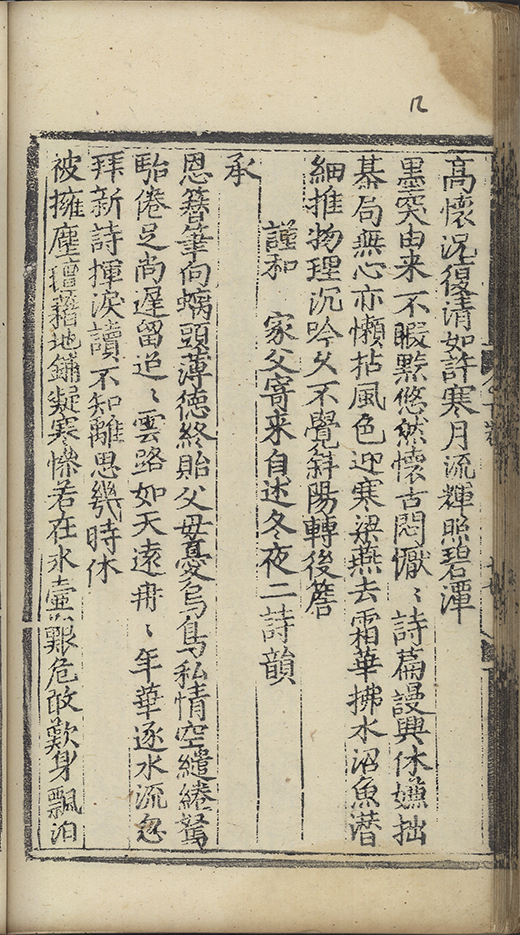 高懷況復清如許寒月流輝照碧潭
墨突由来不暇黔悠然懷古悶懨〻詩篇謾興休嫌拙
棊局無心亦懶拈風色迎寒梁燕去霜華拂水沼魚潛
細推物理沉吟久不覺斜陽轉後簷
謹和　家父寄来自述冬夜二詩韻
承
恩簪筆向螭頭薄德終貽父母憂烏鳥私情空繾綣駑
駘倦足尚遲留迢〻雲路如天遠冉〻年華逐水流忽
拜新詩揮淚讀不知離思幾時休
被擁塵藉地鋪凝寒慘若在氷壺艱危敢歎身飄泊